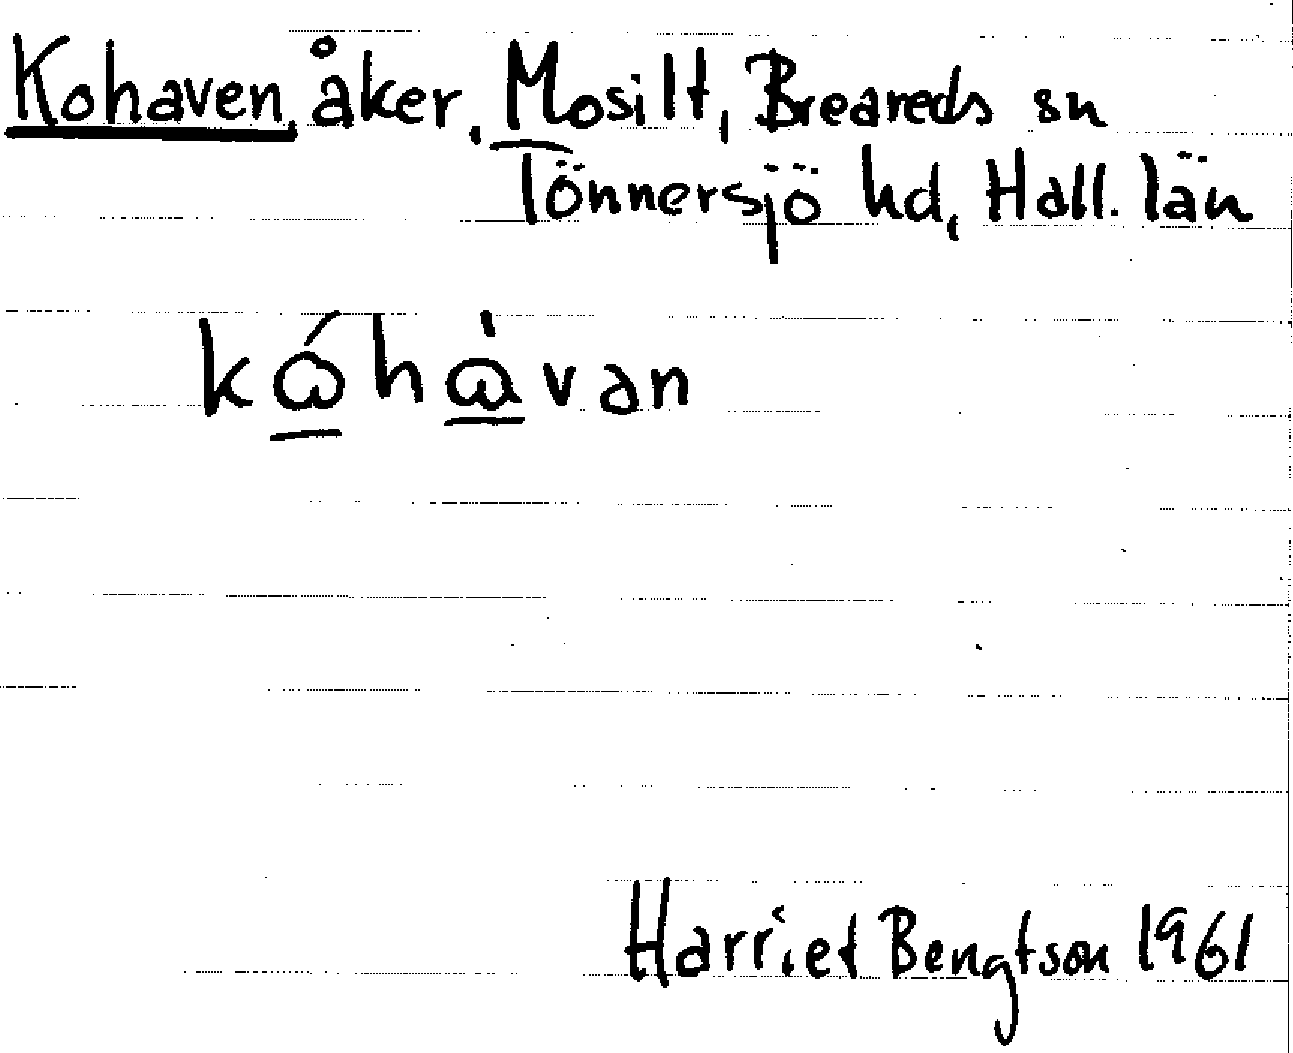 Kohaven, åker, Mosilt, Breareds sn
Tönnersjö hd, Hall. län
kώ̱hὼ̱van
Harriet Bengtson 1961